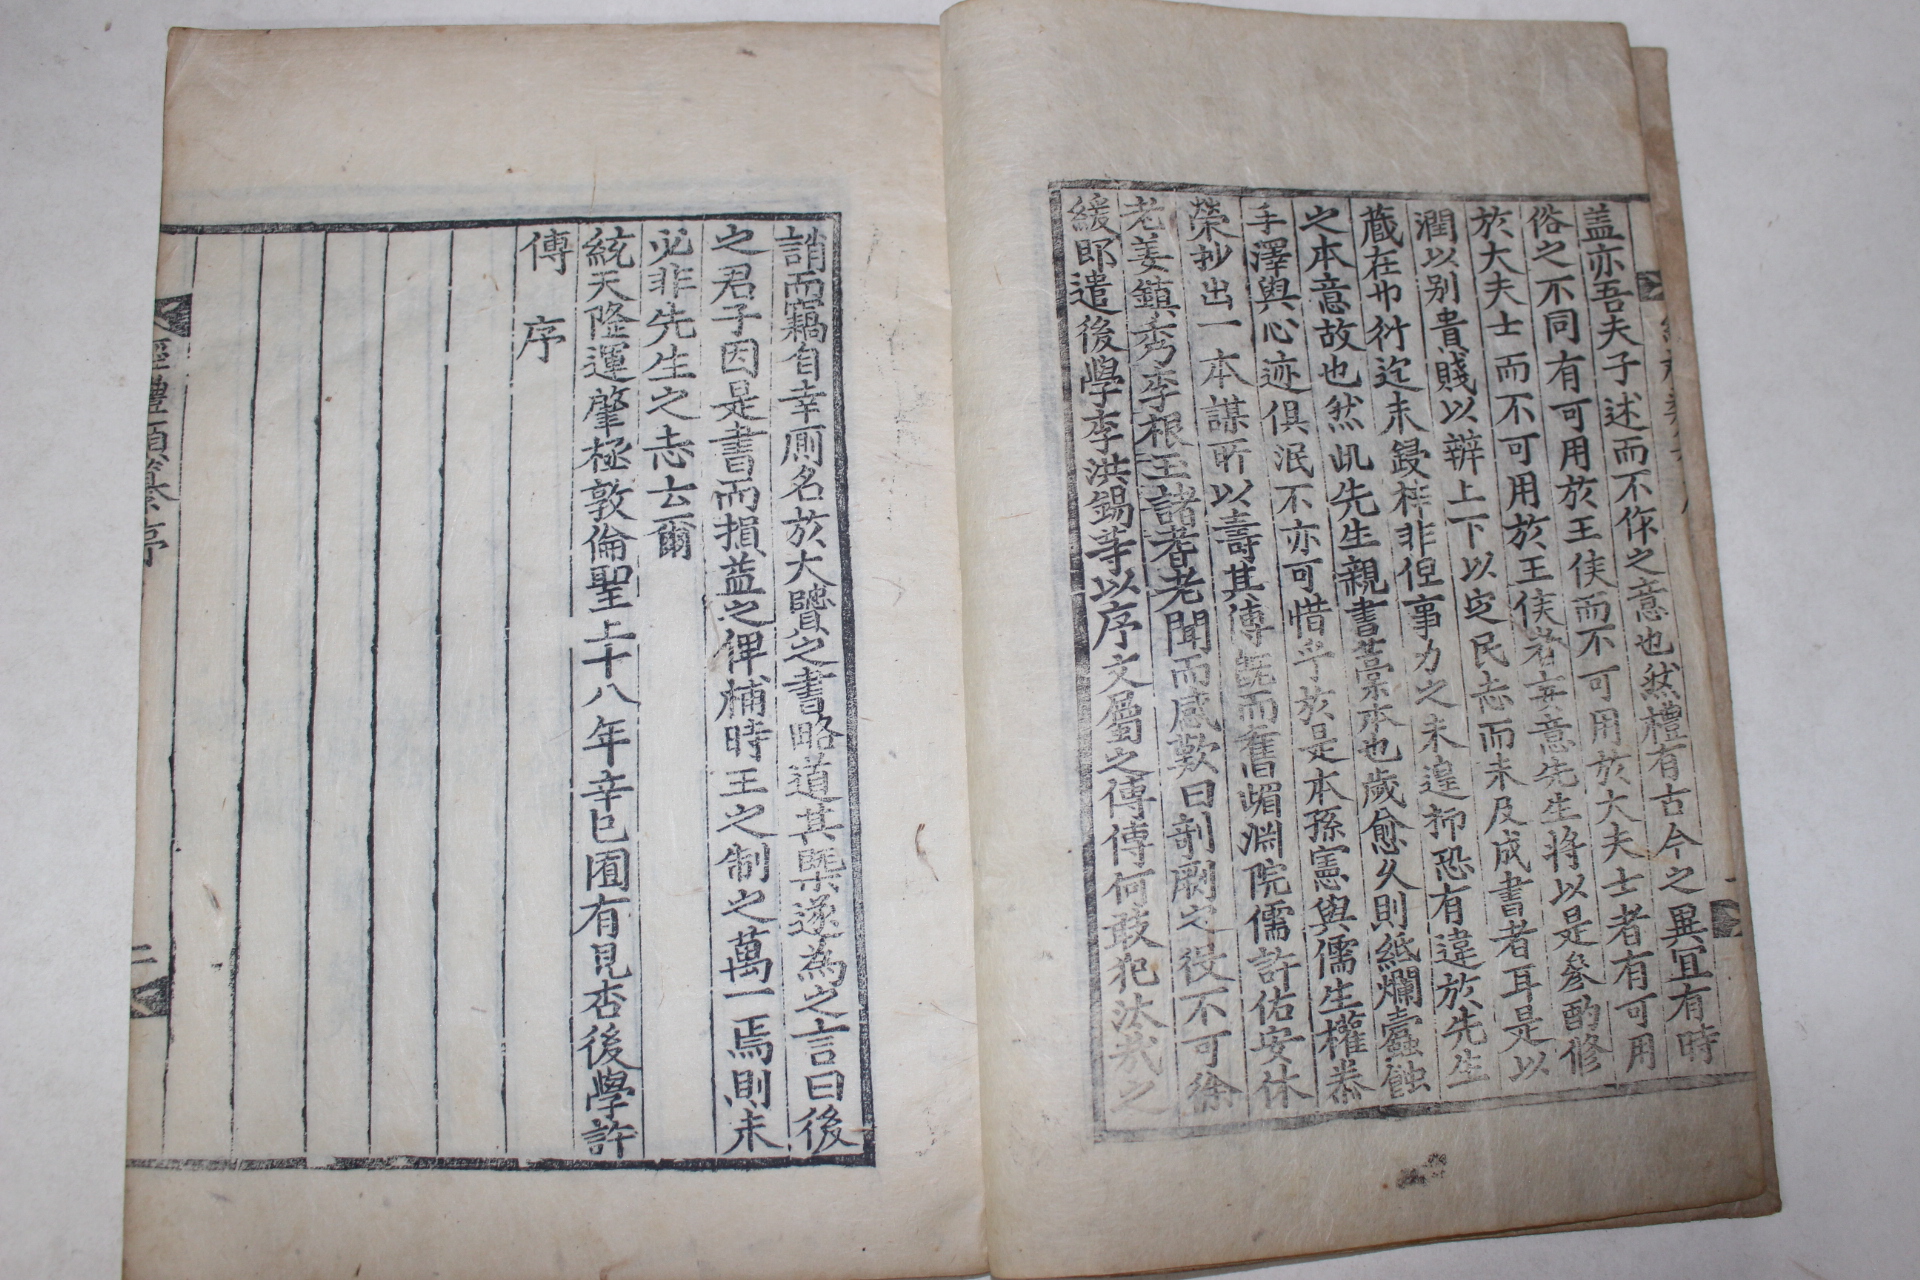 盖亦吾夫子述而不作之意也然禮有古今之異宜有時
俗之不同有可用於王侯而不可用於大夫士者有可用
於大夫士而不可用於王侯者玄意先生將以是參酌修
潤以別貴賤以辨上下以定民志而未及成書者耳是以
藏在巾衍迄未鋟梓非但事力之未遑抑恐有違於先生
之本意故也然此先生親書藁本也歲愈久則紙爛蠹蝕
手澤與心迹俱泯不亦可惜乎於是本孫憲與儒生權恭
榮抄出一本謀所以壽其傳旣而舊嵋淵院儒許佑安休
老姜鎭秀李根玉諸耆老聞而感歎曰剞劂之役不可徐
緩郎遣後學李洪錫等以序文屬之傳傳何敢犯汰哉之
誚而竊自幸厠名於大賢之書略道其槩遂為之言曰後
之君子因是書而損益之俾補時王之制之萬一焉則未
必非先生之志云爾
統天隆運肇極敦倫聖上十八年辛巳圉有見杏後學許
傳 序
經禮類纂 序
二